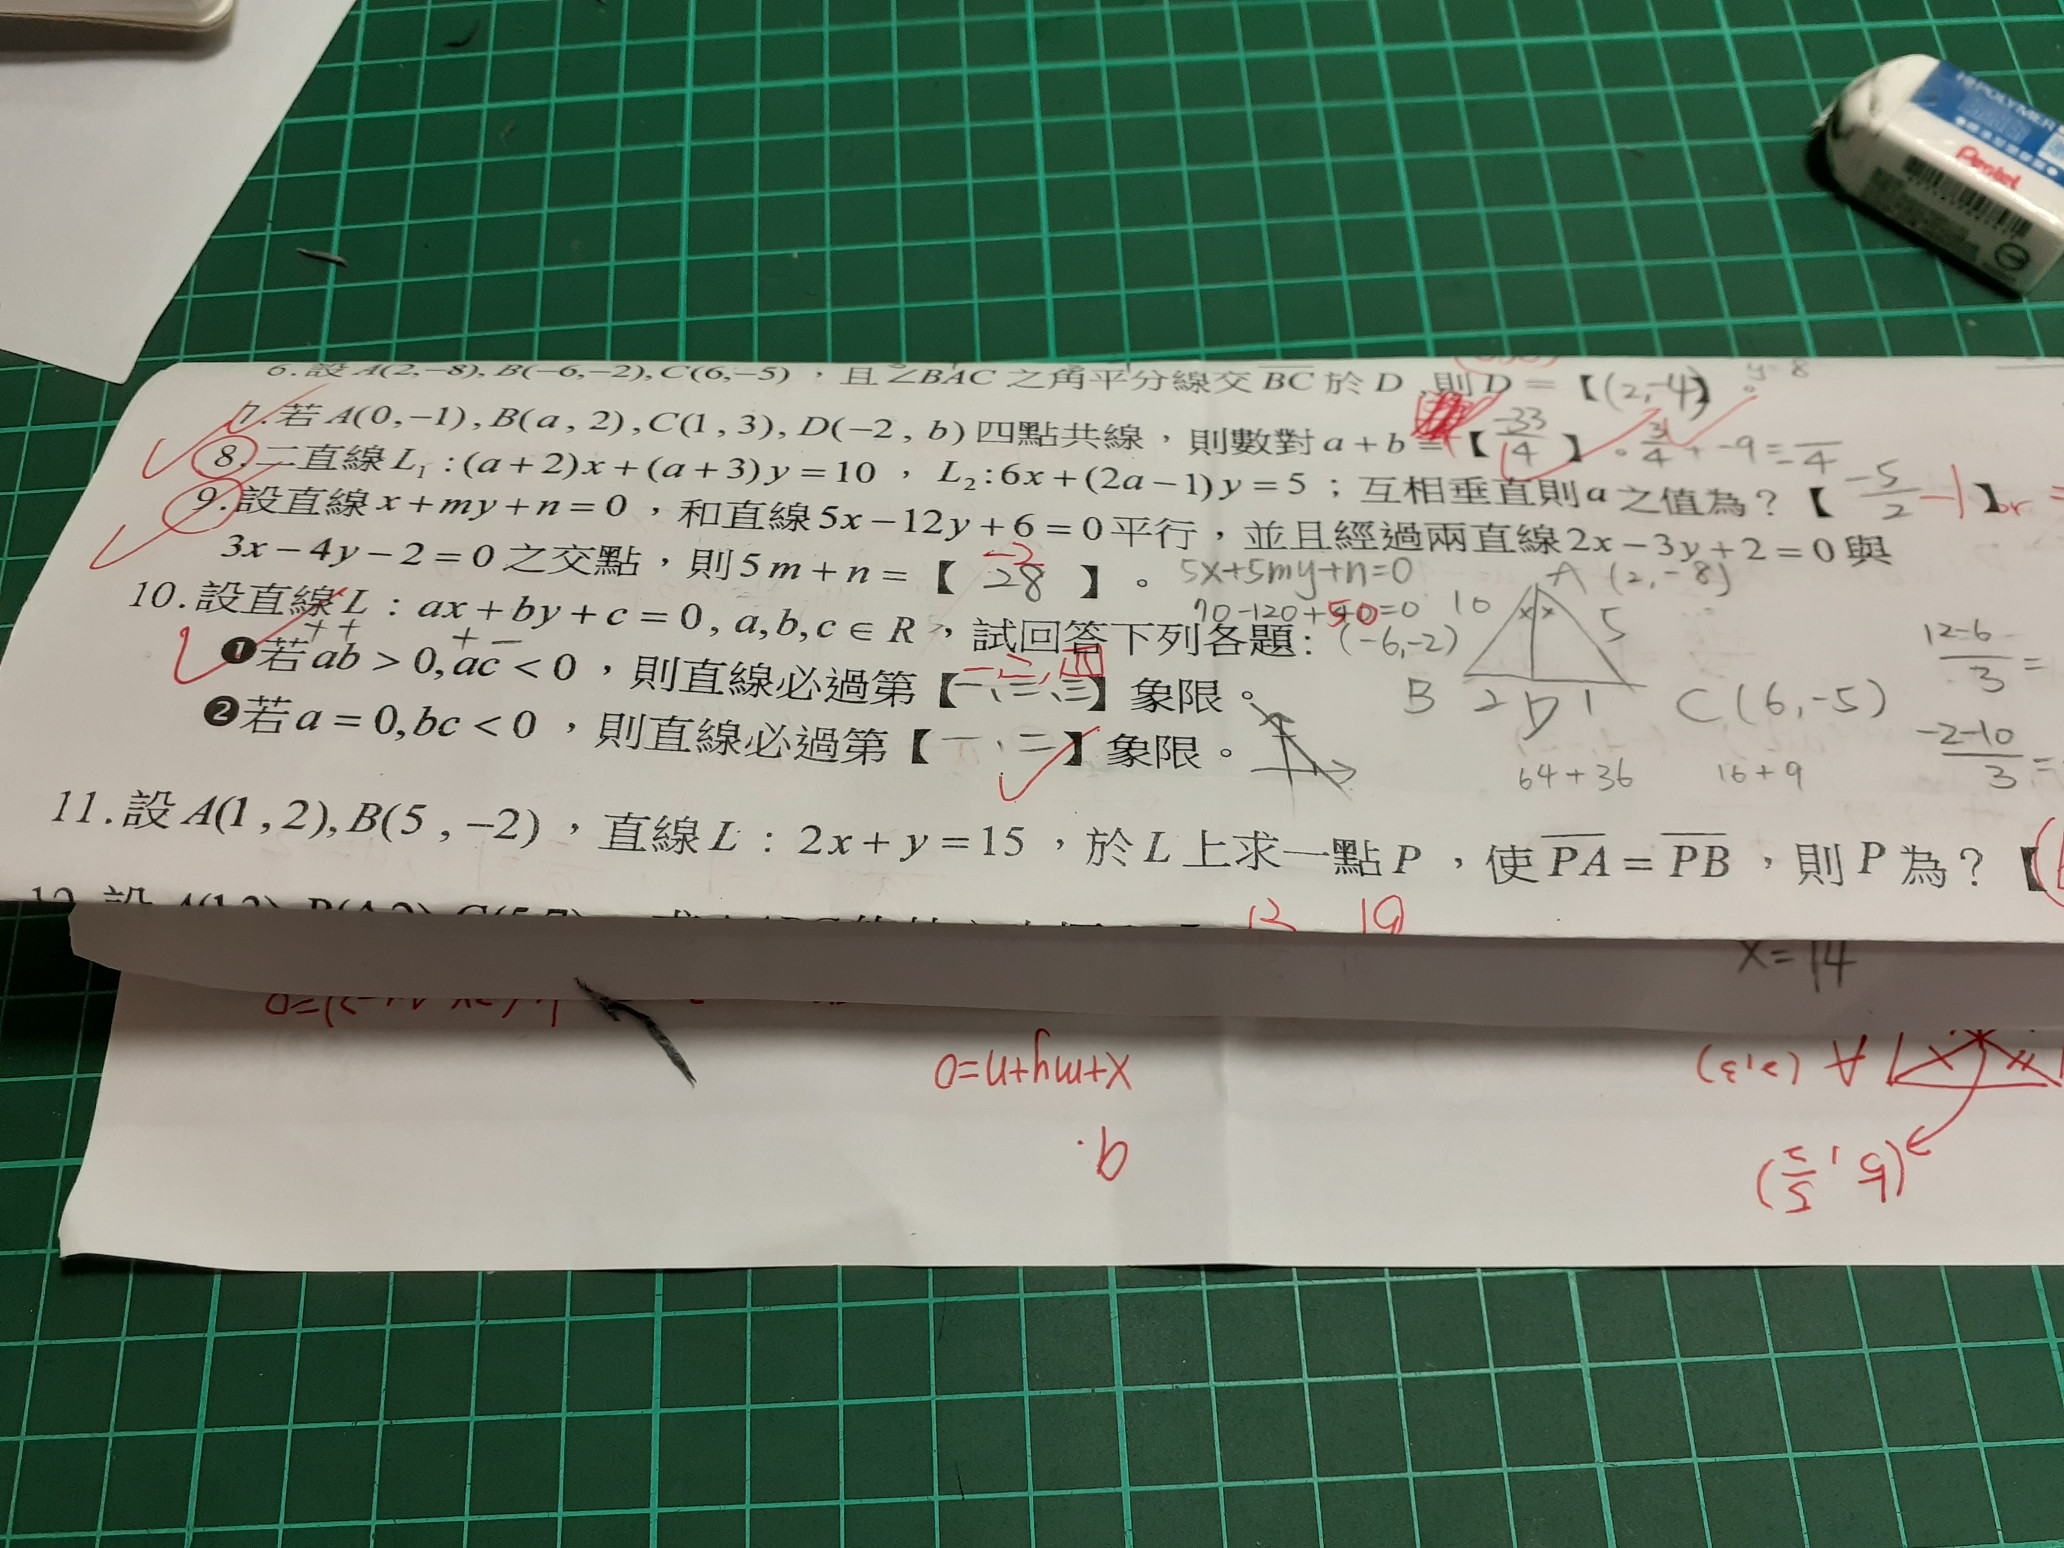 6.設A(2,−8), B(−6,−2), C(6,−5)，且∠BAC之角平分線交BC於D,則D=【(2,-4)】。
y=8
7.若A(0,−1),B(a,2),C(1,3),D(−2,b)四點共線，則數對a+b=【-33/4】。3/4+-9=
8.二直線L₁:(a+2)x+(a+3)y=10，L₂:6x+(2a−1)y=5；互相垂直則a之值為?【-5/2 -1】or
9.設直線x+my+n=0，和直線5x−12y+6=0平行，並且經過兩直線2x−3y+2=0與
3x−4y−2=0之交點，則5m+n=【28】。
-2
5x+5my+n=0
70-120+50=0
10.設直線L:ax+by+c=0,a,b,c∈R，試回答下列各題:
++
+-
❶若ab>0,ac<0，則直線必過第【一、二、三】象限。
一、二、四
❷若a=0,bc<0，則直線必過第【一、二】象限。
A(2,-8)
10
5
(-6,-2)
B 2 D 1 C(6,-5)
64+36 16+9
12-6/3=
-2-10/3=
11.設A(1,2),B(5,−2)，直線L:2x+y=15，於L上求一點P，使PA=PB，則P為?【(
12.設
13 19
x=14
x+my+n=0
9.
A(2,3)
(5,5/2)
HI-POLYMER
Pentel